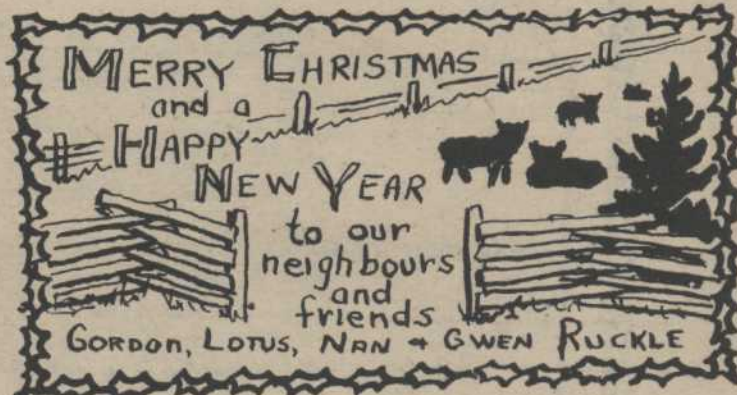 MERRY CHRISTMAS
and a
HAPPY
NEW YEAR
to our
neighbours
and
friends
GORDON, LOTUS, NAN + GWEN RUCKLE